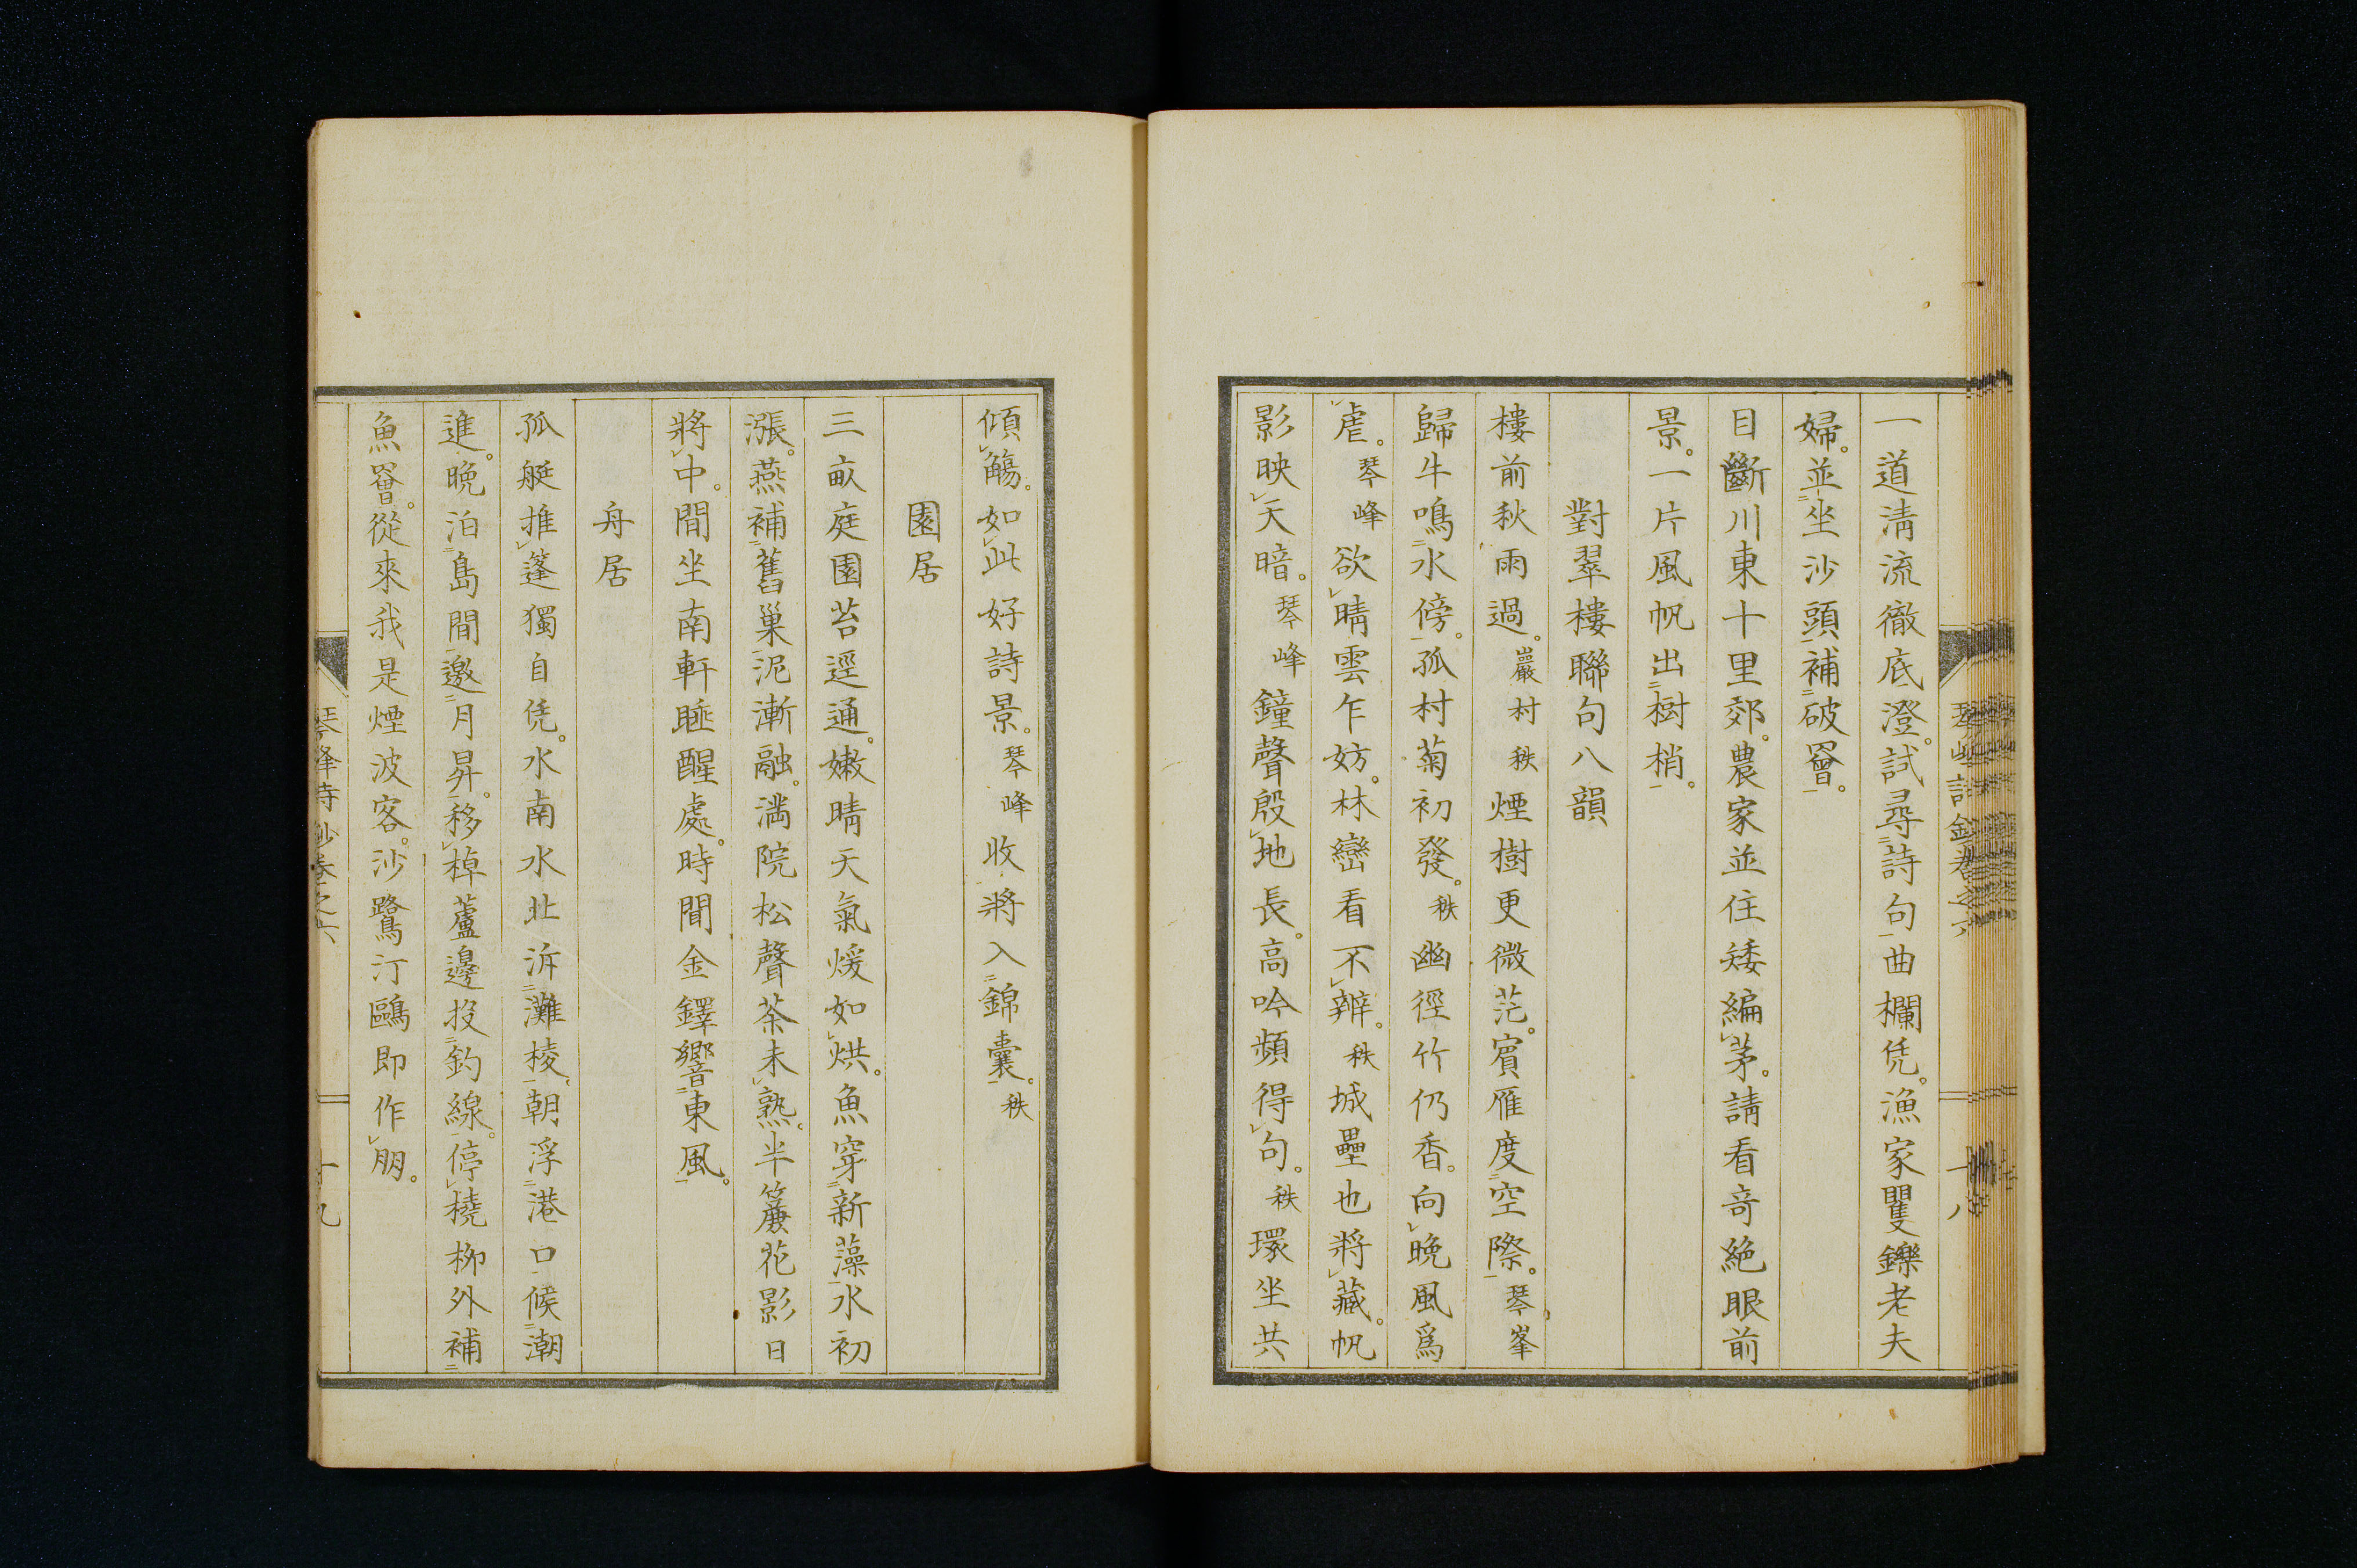 一道淸流徹底澄。試尋詩句曲欄凭。漁家矍鑠老夫
婦。並坐沙頭補破罾。
目斷川東十里郊。農家並住矮編茅。請看奇絶眼前
景。一片風帆出樹梢。
對翠樓聯句八韻
樓前秋雨過。巖村秩煙樹更微茫。賓雁度空際。琴峯
歸牛鳴水傍。孤村菊初發。秩幽徑竹仍香。向晩風爲
虐。琴峰欲晴雲乍妨。林巒看不辨。秩城壘也將藏。帆
影映天暗。琴峰鐘聲殷地長。高吟頻得句。秩環坐共
琴峰詩鈔卷之六
十八
傾觴。如此好詩景。琴峰收將入錦囊。秩
園居
三畝庭園苔逕通。嫩晴天氣煖如烘。魚穿新藻水初
漲。燕補舊巢泥漸融。滿院松聲茶未熟。半簾花影日
將中。閒坐南軒睡醒處。時聞金鐸響東風。
舟居
孤艇推篷獨自凭。水南水北泝灘棱。朝浮港口候潮
進。晩泊島間邀月昇。移棹蘆邊投釣線。停橈柳外補
魚罾。從來我是煙波客。沙鷺汀鷗即作朋。
琴峰詩鈔卷之六
十九